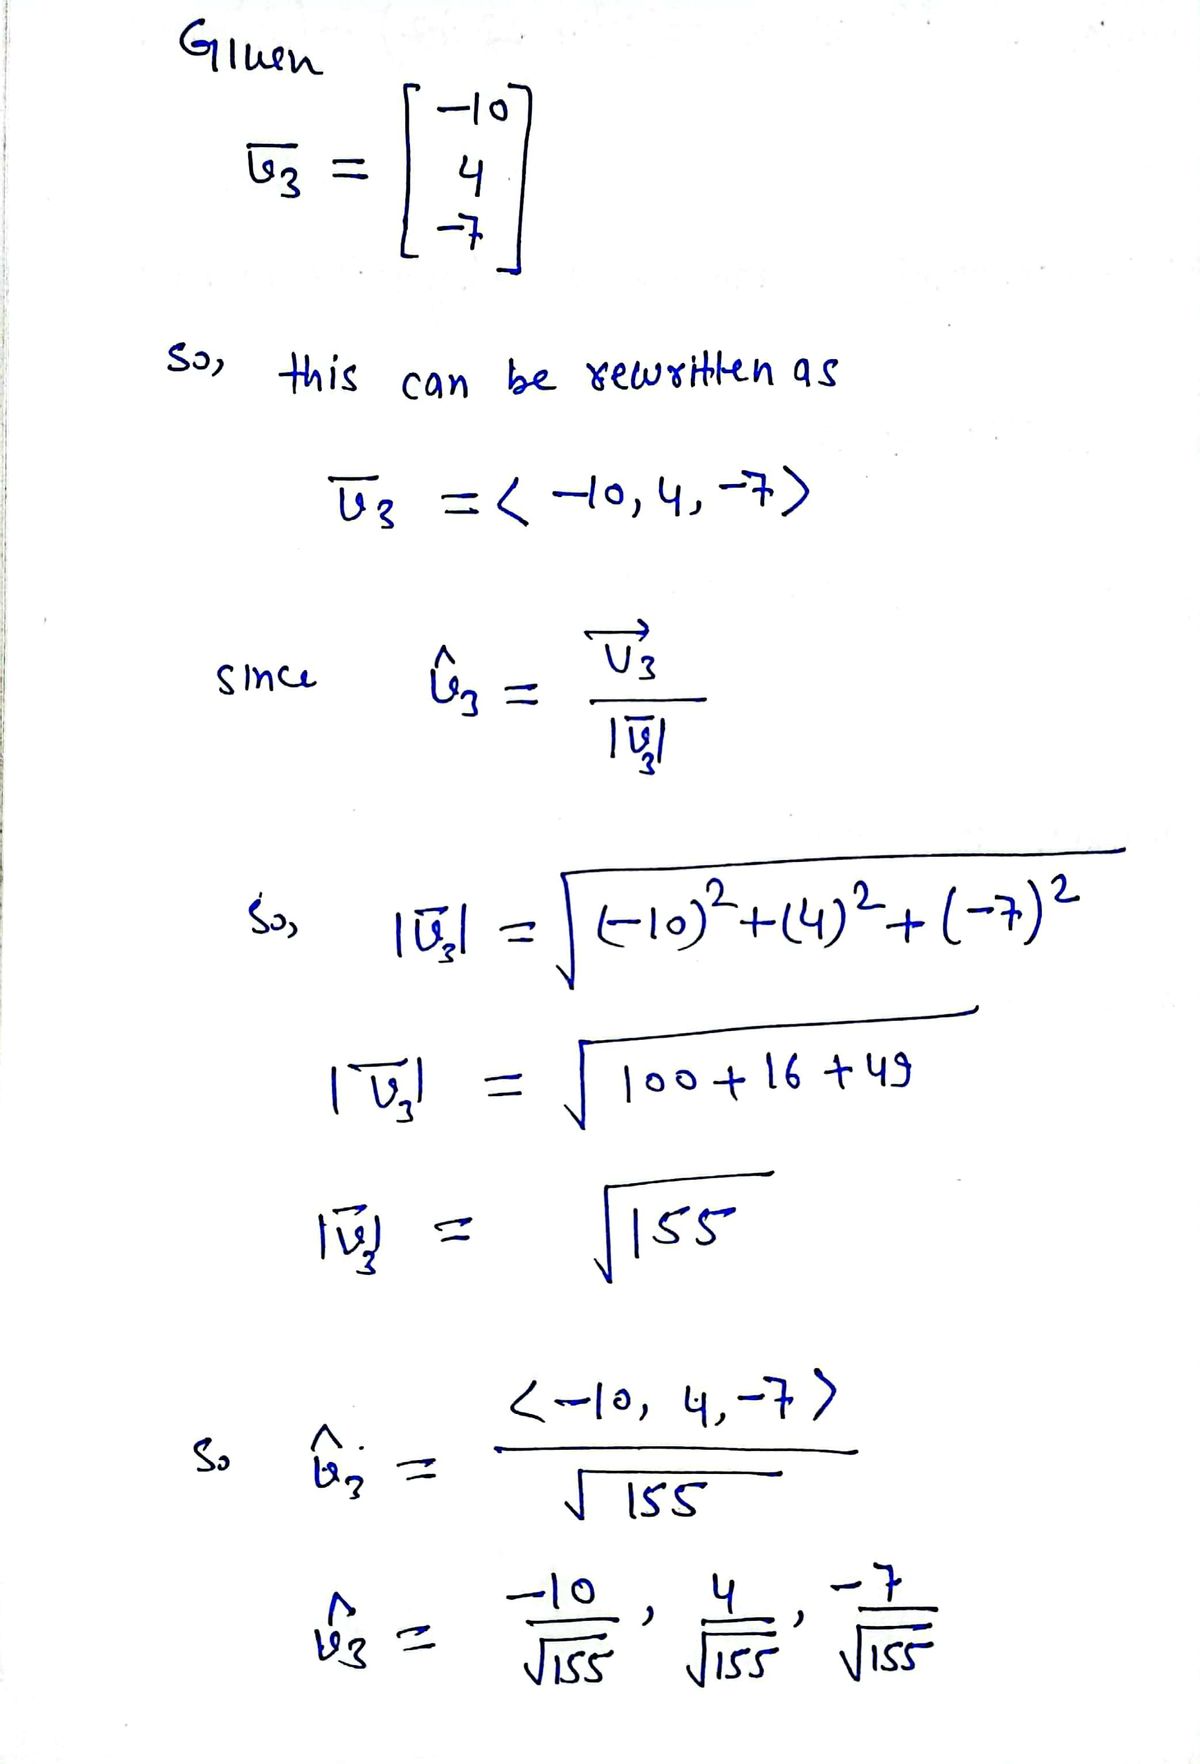 Given
v̄₃ = [ -10
4
-7 ]
So, this can be rewritten as
v̄₃ = < -10, 4, -7 >
since v̂₃ = v⃗₃ / |v̄₃|
So, |v̄₃| = √((-10)² + (4)² + (-7)²)
|v̄₃| = √(100 + 16 + 49)
|v̄₃| = √155
So v̂₃ = < -10, 4, -7 > / √155
v̂₃ = -10/√155 , 4/√155 , -7/√155